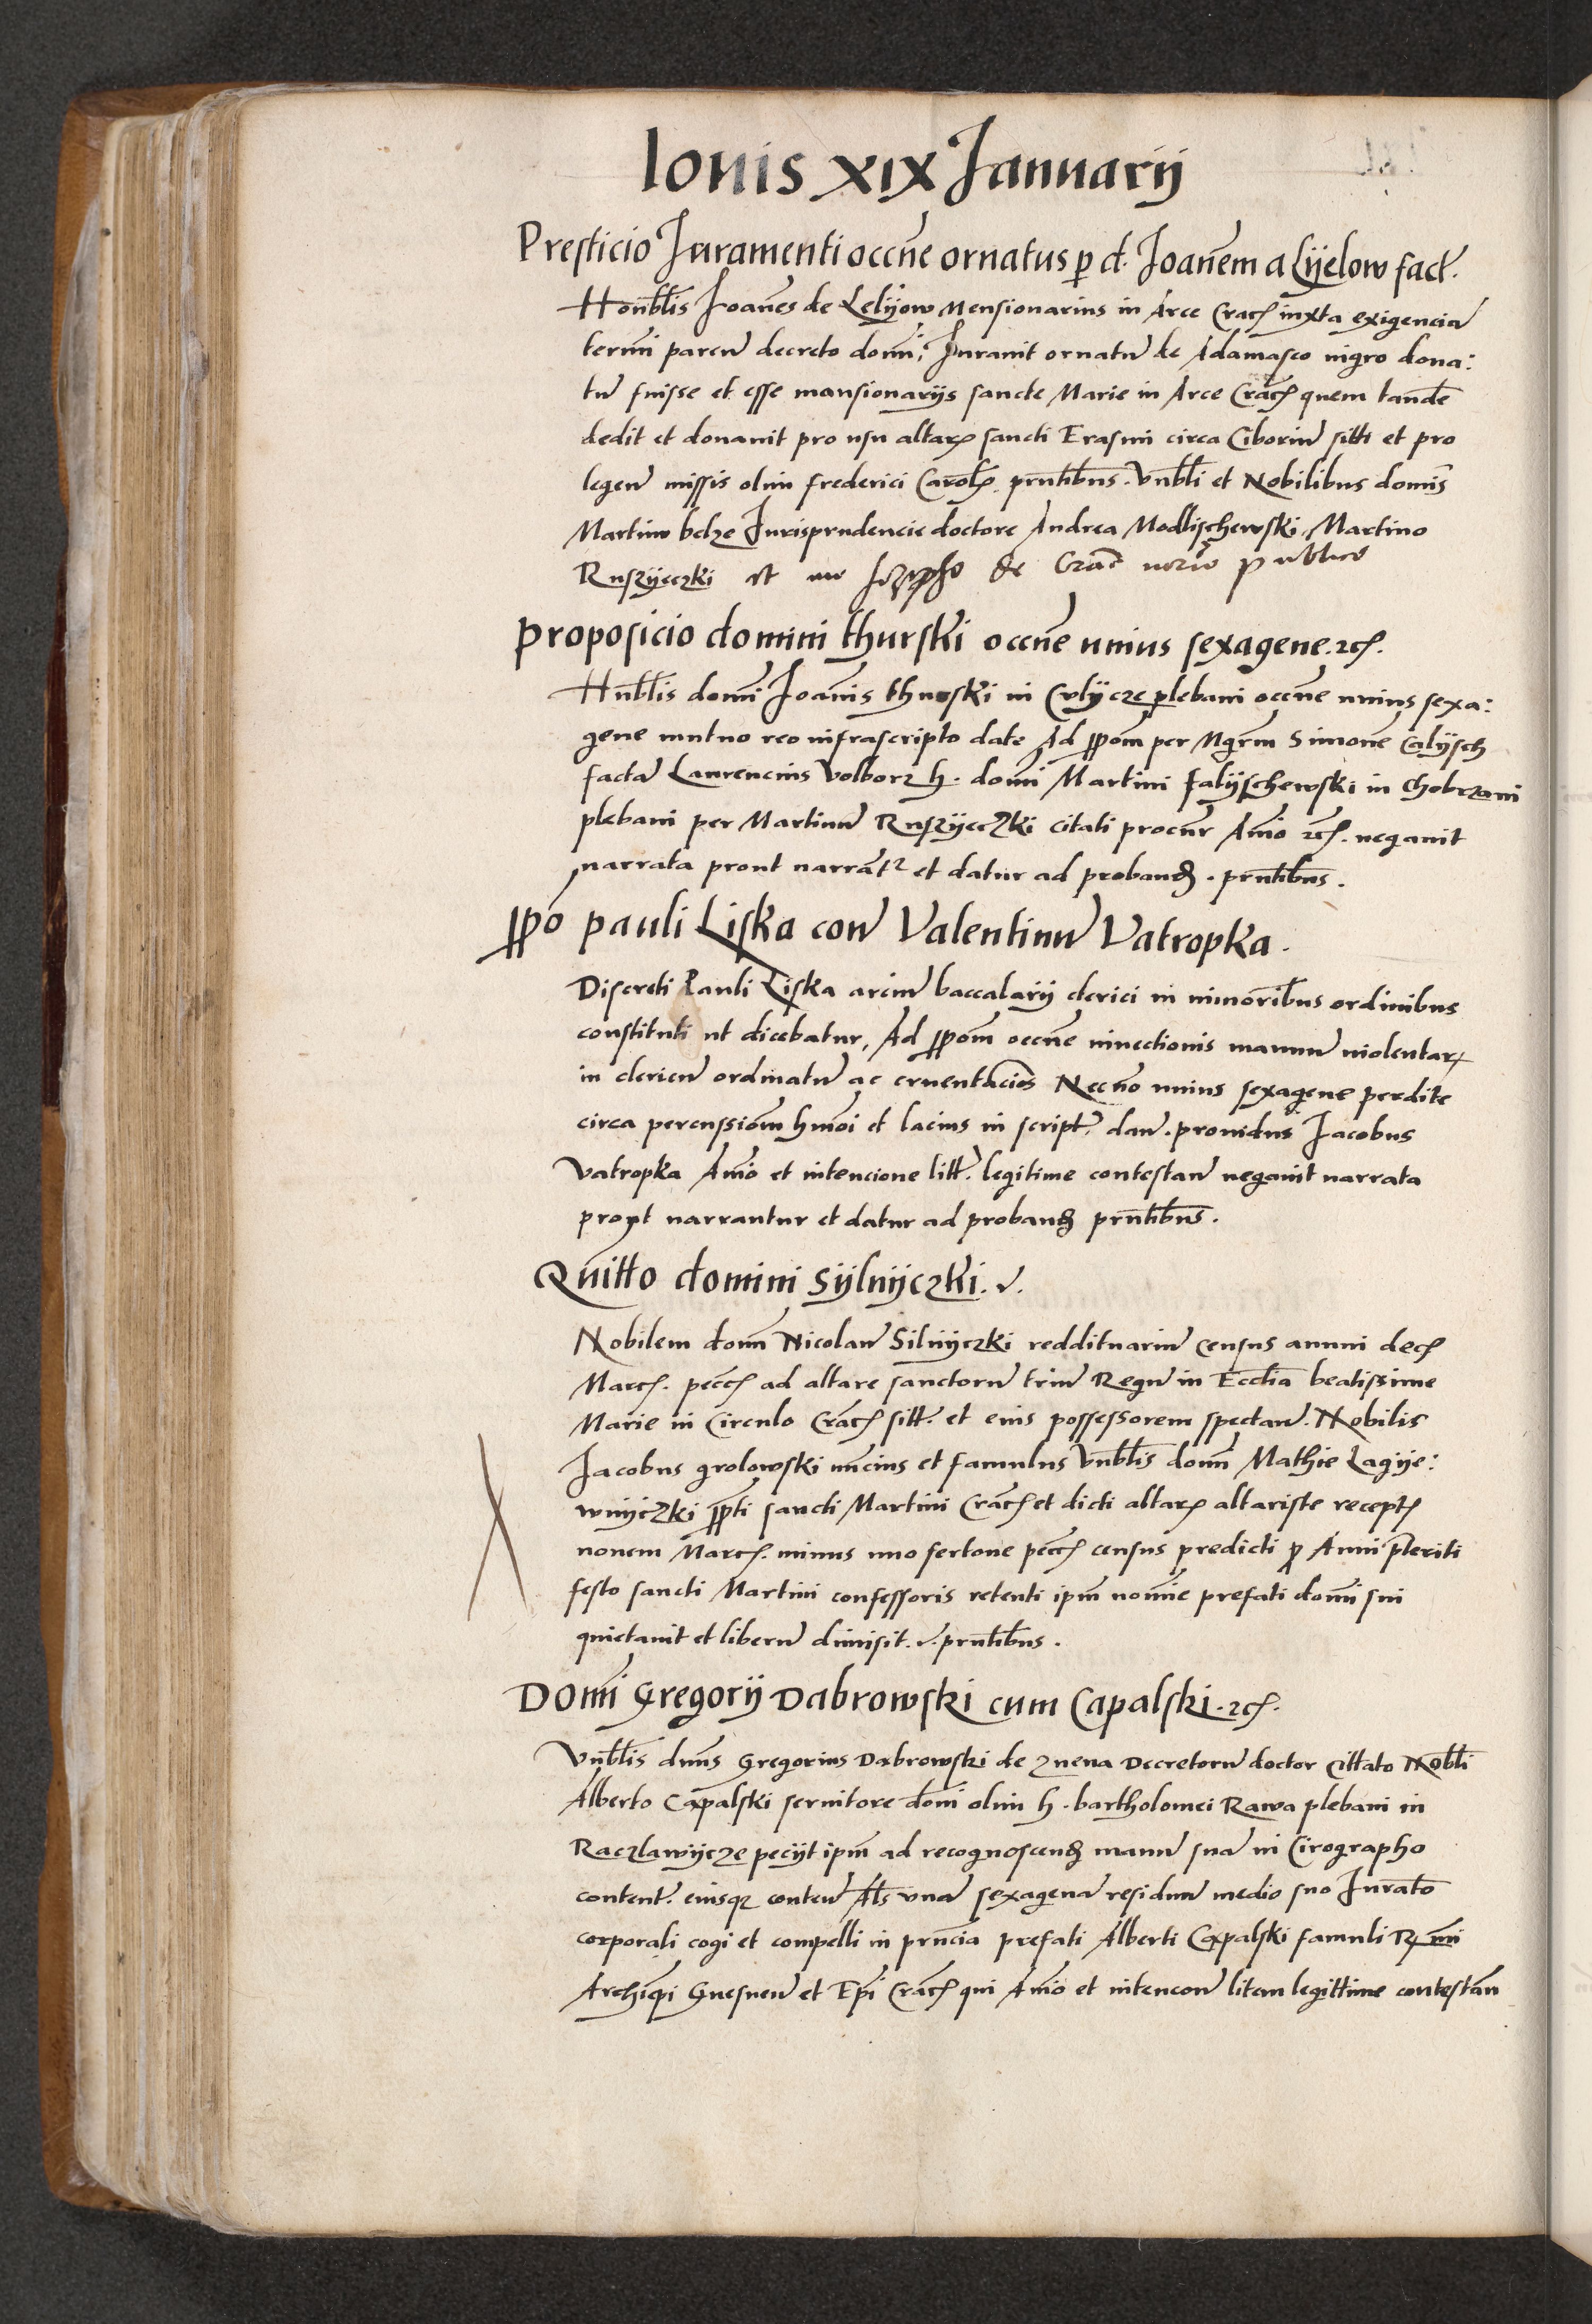 Iouis xix Januarij
Presticio Juramenti occne ornatus p d. Joanem a Lyelow fact.
Honblis Joanes de Lelyow Mensionarius in Arce Crac iuxta exigencia
termi paren decreto domi, Juravit ornatu de Adamasco nigro dona:
tu fuisse et esse mansionarijs sancte Marie in Arce Crac quem tande
dedit et donauit pro usu altar sancti Erasmi circa Ciboriu sitti et pro
legen missis olim frederici Carol prntibus. Vnbli et Nobilibus domis
Martino belze Jurisprudencie doctore Andrea Modlischewski, Martino
Ruszyeczki et me Jozepho de Crac norio publico
Proposicio domini thurski occne unius sexagene. rc.
Hnblis domi Joanis thurski in Culycze plebani occne unius sexa:
gene mutuo reo infrascripto date Ad ppom per Mgrm Simone Calysch
facta Laurencius Volborz h. domi Martini falyschewski in Chobrzani
plebani per Martinu Ruszyeczki citati procur Amo rc. negauit
narrata prout narrat et datur ad proband. prntibus.
ppo pauli Liska con Valentinu Vatropka.
Discreti Pauli Liska arciu baccalarij clerici in minoribus ordinibus
constituti ut dicebatur, Ad ppom occne iniectionis manuu uiolentar
in clericu ordinatu ac cruentacios Necno unius sexagene perdite
circa percussiom hmoi et lacius in script. dan. prouidus Jacobus
Vatropka Amo et intencione litt. legitime contestan negauit narrata
prout narrantur et datur ad proband prntibus.
Quitto domini Sylnyczki. v.
Nobilem domi Nicolau Silnyczki reddituariu census annui dec
Marc. pecc ad altare sanctoru triu Regu in Ecclia beatissime
Marie in Circulo Crac sitt. et eius possessorem spectan. Nobilis
Jacobus grolowski nuncius et famulus Vnblis domi Mathie Lagye:
wnyczki ppti sancti Martini Crac et dicti altar altariste recept
nouem Marc. minus uno fertone pecc census predicti p Anni pteriti
festo sancti Martini confessoris retenti ipm nomie prefati domi sui
quietauit et liberu dimisit. v. prntibus.
Domi Gregorij Dabrowski cum Capalski. rc.
Vnblis dnus Gregorius Dabrowski de Znena Decretoru doctor Cittato Nobli
Alberto Capalski seruitore domi olim h. bartholomei Rawa plebani in
Raczlawycze pecijt ipm ad recognoscend manu sua in Cirographo
content. eiusq conten Als una sexagena residuu medio suo Jurato
corporali cogi et compelli in prncia prefati Alberti Capalski famuli R mi
Archiepi Gnesnen et Epi Crac qui Amo et intencon litem legittime contestan